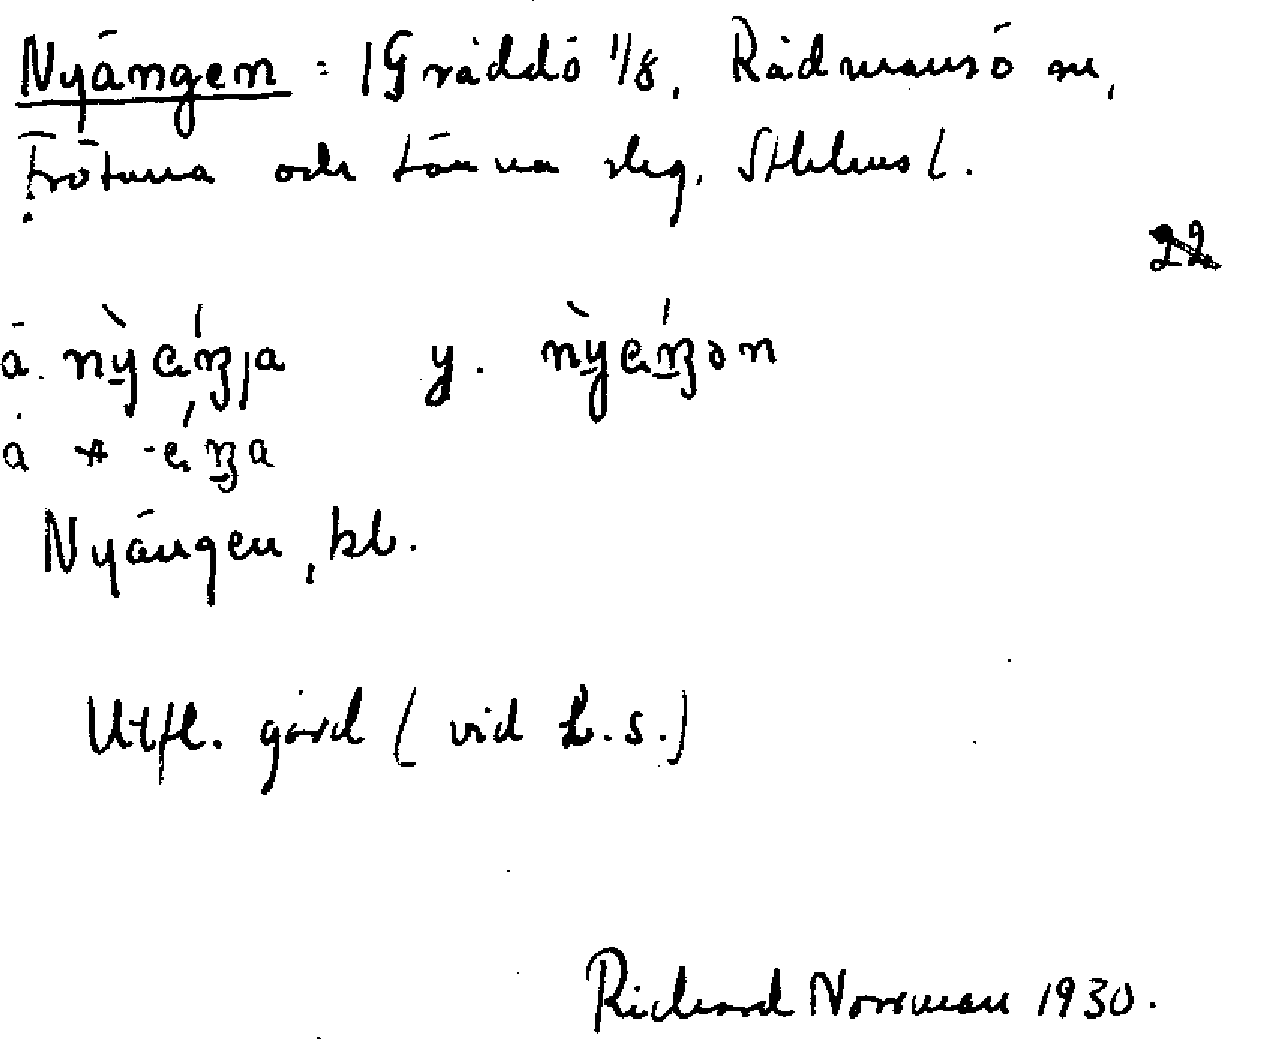 Nyängen : 1 Gräddö 1/8, Rådmansö sn,
Frötuna och Länna slg. Sthlms l.
22
ä. nỳęńȷa y. nỳęńən
å -ęńa
Nyängen, kb.
Utfl. gård ( vid L. s.)
Richard Norrman 1930.